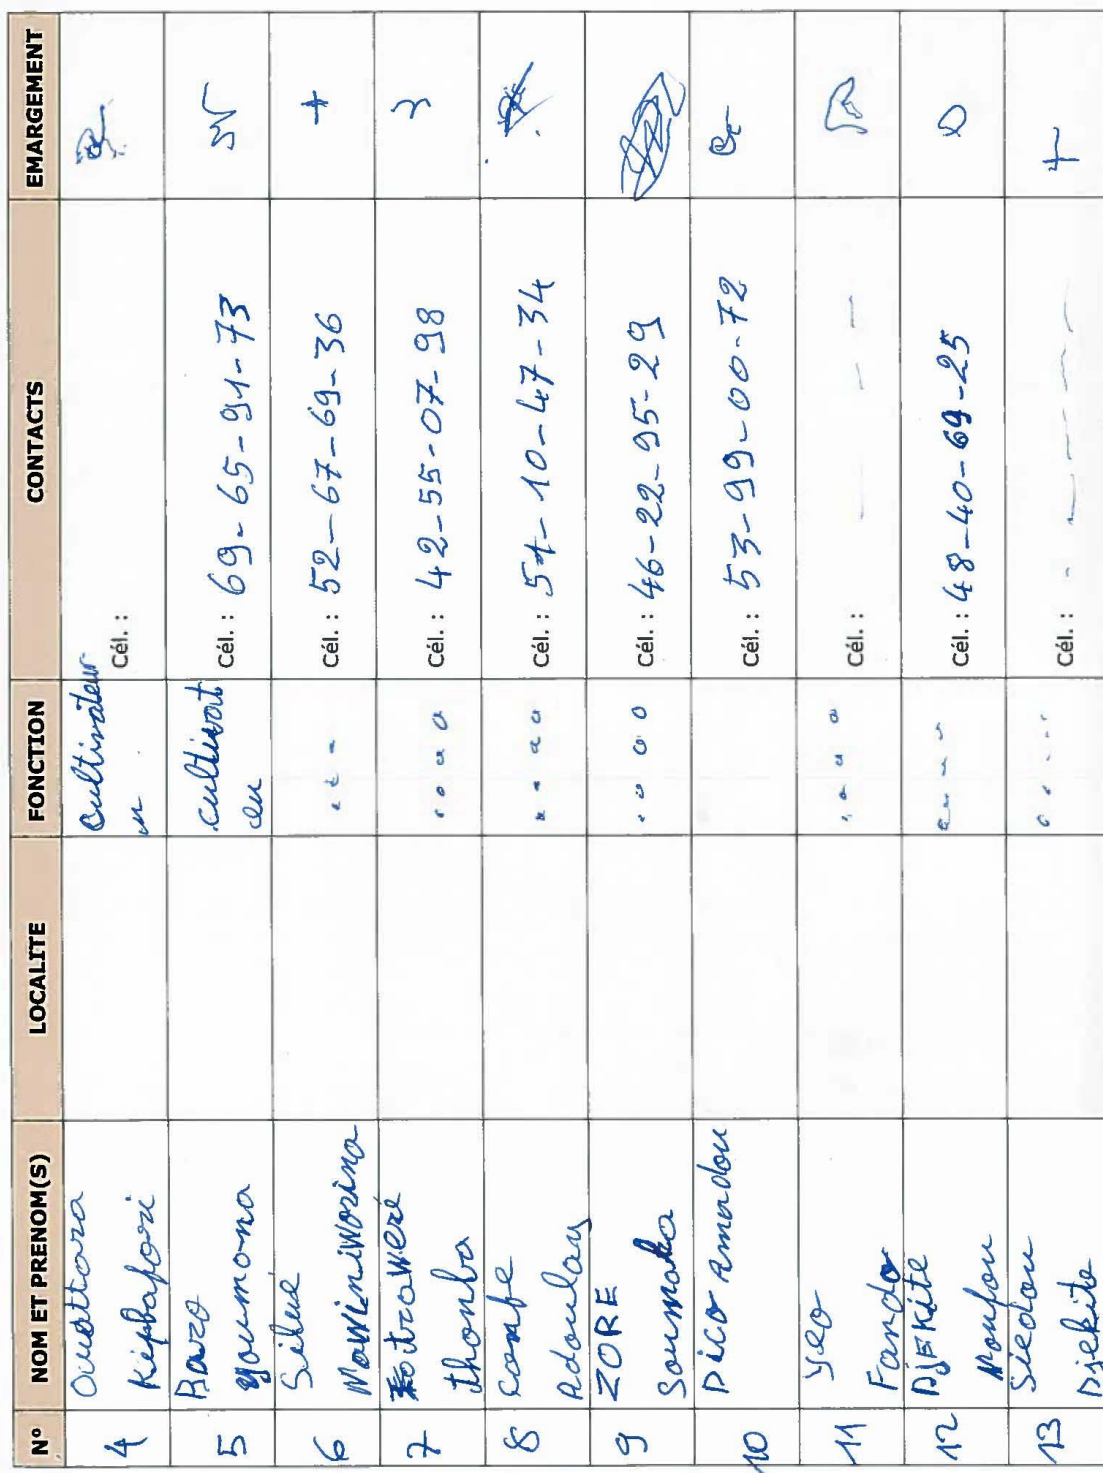 N° NOM ET PRENOM(S) LOCALITE FONCTION CONTACTS EMARGEMENT
4 Ouattora Cultivateur
Kepbafori Cél. :
5 Bazo cultivat
youmona eur Cél. : 69-65-91-73
6 Silué
Mawiniworina Cél. : 52-67-69-36
7
thonba Cél. : 42-55-07-98
8
Adoulay Cél. : 51-10-47-34
9 ZORE
Soumako Cél. : 46-22-95-29
10 Dico Amadou 53-99-00-72
11 Yeo
Fando Cél. :
12 DjEKité
Moufou Cél. : 48-40-69-25
13 Siedou
Djekite Cél. :